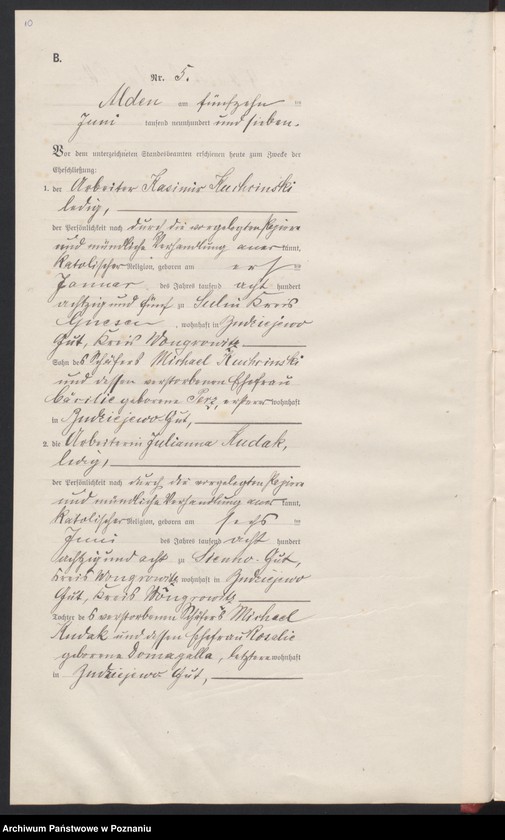 10
B.
Nr. 5.
Mlden am fünfzehn ten
Juni tausend neunhundert und sieben.
Vor dem unterzeichneten Standesbeamten erschienen heute zum Zwecke der
Eheschließung:
1. der Arbeiter Kasimir Kuchcinski
ledig,
der Persönlichkeit nach durch die vorgelegten Papiere
und mündliche Verhandlung aner kannt,
katolischer Religion, geboren am ersten
Januar des Jahres tausend acht hundert
achtzig und fünf zu Sulin Kreis
Gnesen, wohnhaft in Budziejewo
Gut, Kreis Wongrowitz
Sohn des Schäfers Michael Kuchcinski
und dessen verstorbenen Ehefrau
Cäcilie geborene ersterer wohnhaft
in Budziejewo Gut,
2. die Arbeiterin Julianna Kudak,
ledig,
der Persönlichkeit nach durch die vorgelegten Papiere
und mündliche Verhandlung aner kannt,
katolischer Religion, geboren am sechs ten
Juni des Jahres tausend acht hundert
achtzig und acht zu Sienno-Gut,
Kreis Wongrowitz wohnhaft in Budziejewo
Gut, Kreis Wongrowitz
Tochter des verstorbenen Schäfers Michael
Kudak und dessen Ehefrau Rosalie
geborene Domagalla, letztere wohnhaft
in Budziejewo Gut,
Archiwum Państwowe w Poznaniu